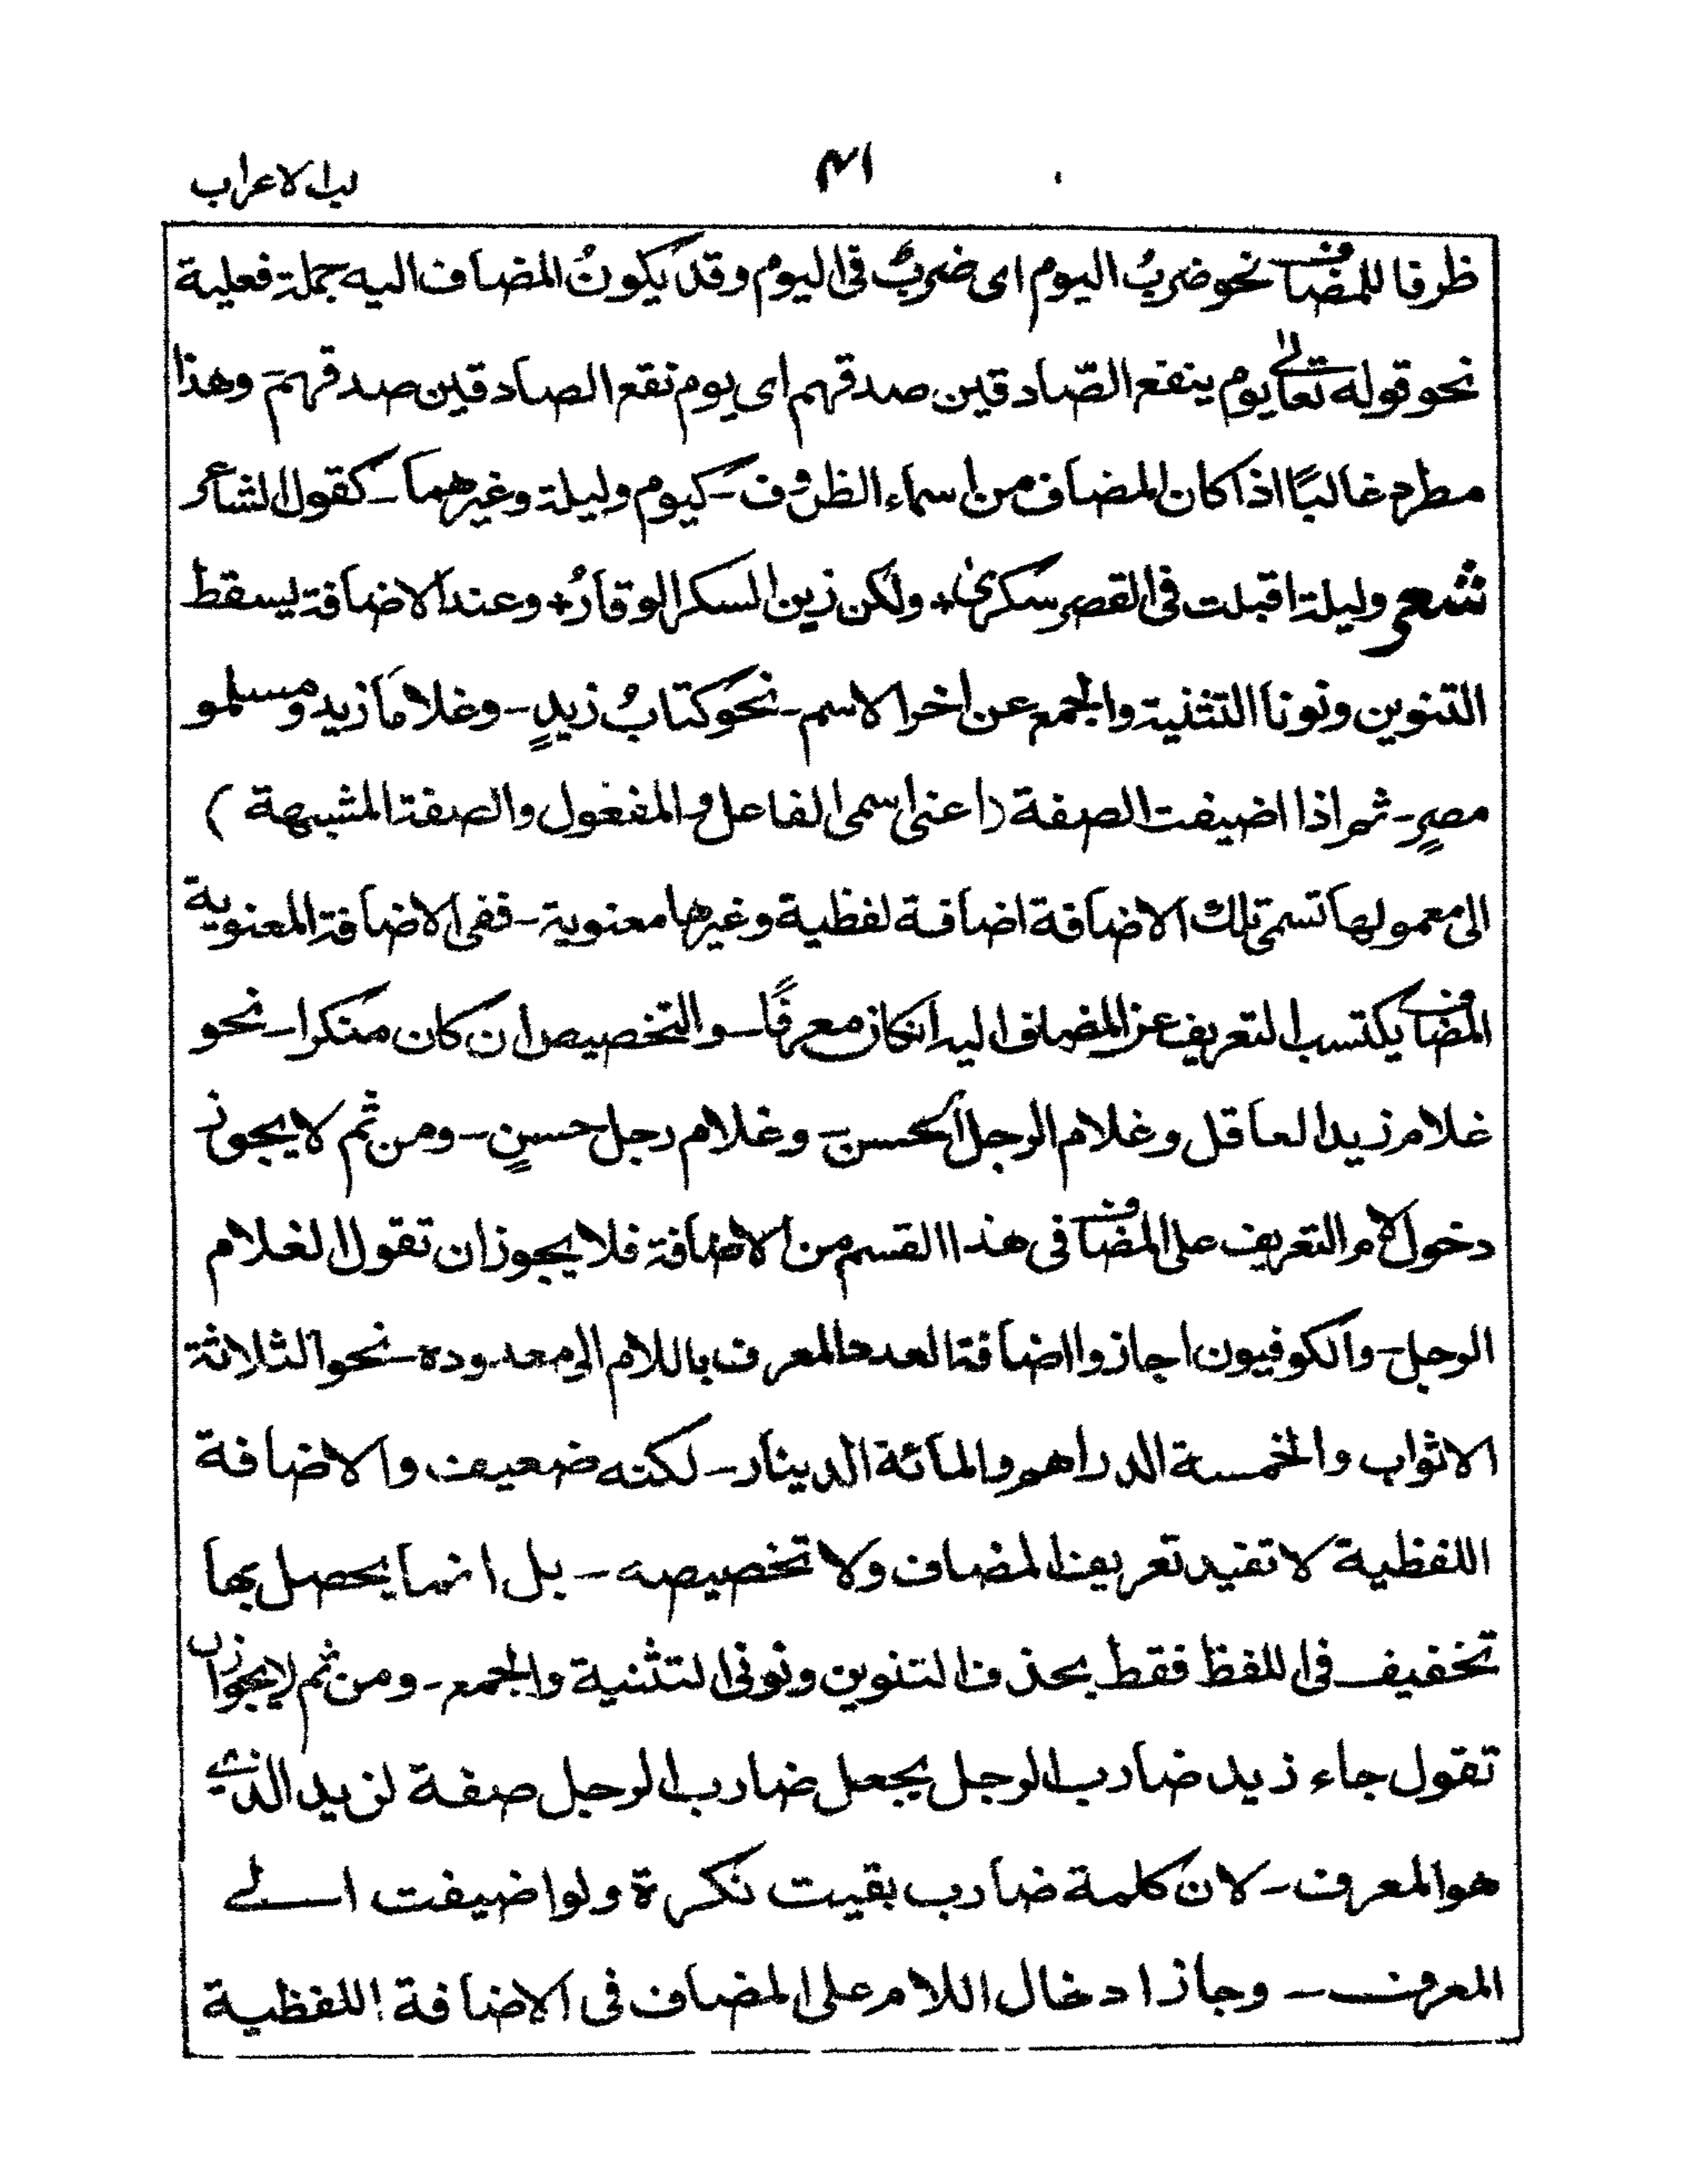 لب الاعراب
٤١
ظرفا للمضاف نحو ضربُ اليوم اى ضربٌ فى اليوم وقد يكونُ المضاف اليه جملة فعلية
نحو قوله تعالى يوم ينفع الصّادقين صدقهم اى يوم نفع الصادقين صدقهم وهذا
مطرد غالبًا اذا كان المضاف من اسماء الظروف ـ كيوم وليلة وغيرهما ـ كقول الشاعر
شعر وليلة اقبلت فى القصر سكرىٰ + ولكن زين السكر الوقارُ + وعند الاضافة يسقط
التنوين ونونا التثنية والجمع عن اخر الاسم ـ نحو كتابُ زيدٍ ـ وغلاما زيد ومسلمو
مصرٍ ـ ثم اذا اضيفت الصفة (اعنى اسمى الفاعل والمفعول والصفة المشبهة)
الى معمولها تسمى تلك الاضافة اضافة لفظية وغيرها معنوية ـ ففى الاضافة المعنوية
المضاف يكتسب التعريف عن المضاف اليه انكان معرفًا ـ والتخصيص ان كان منكرا ـ نحو
غلام زيد العاقل وغلام الرجل الحسن ـ وغلام رجل حسنٍ ـ ومن ثم لا يجوز
دخول لام التعريف على المضاف فى هذا القسم من الاضافة فلا يجوز ان تقول الغلام
الرجل ـ والكوفيون اجازوا اضافة العدد المعرف باللام الى معدوده ـ نحو الثلاثة
الاثواب والخمسة الدراهم والمائة الدينار ـ لكنه ضعيف والاضافة
اللفظية لا تفيد تعريف المضاف ولا تخصيصه ـ بل انما يحصل بها
تخفيف فى اللفظ فقط بحذف التنوين ونونى التثنية والجمع ـ ومن ثم لا يجوز ان
تقول جاء زيد ضارب الرجل بجعل ضارب الرجل صفة لزيد الذى
هو المعرف ـ لان كلمة ضارب بقيت نكرة ولو اضيفت الى
المعرف ـ وجاز ادخال اللام على المضاف فى الاضافة اللفظية